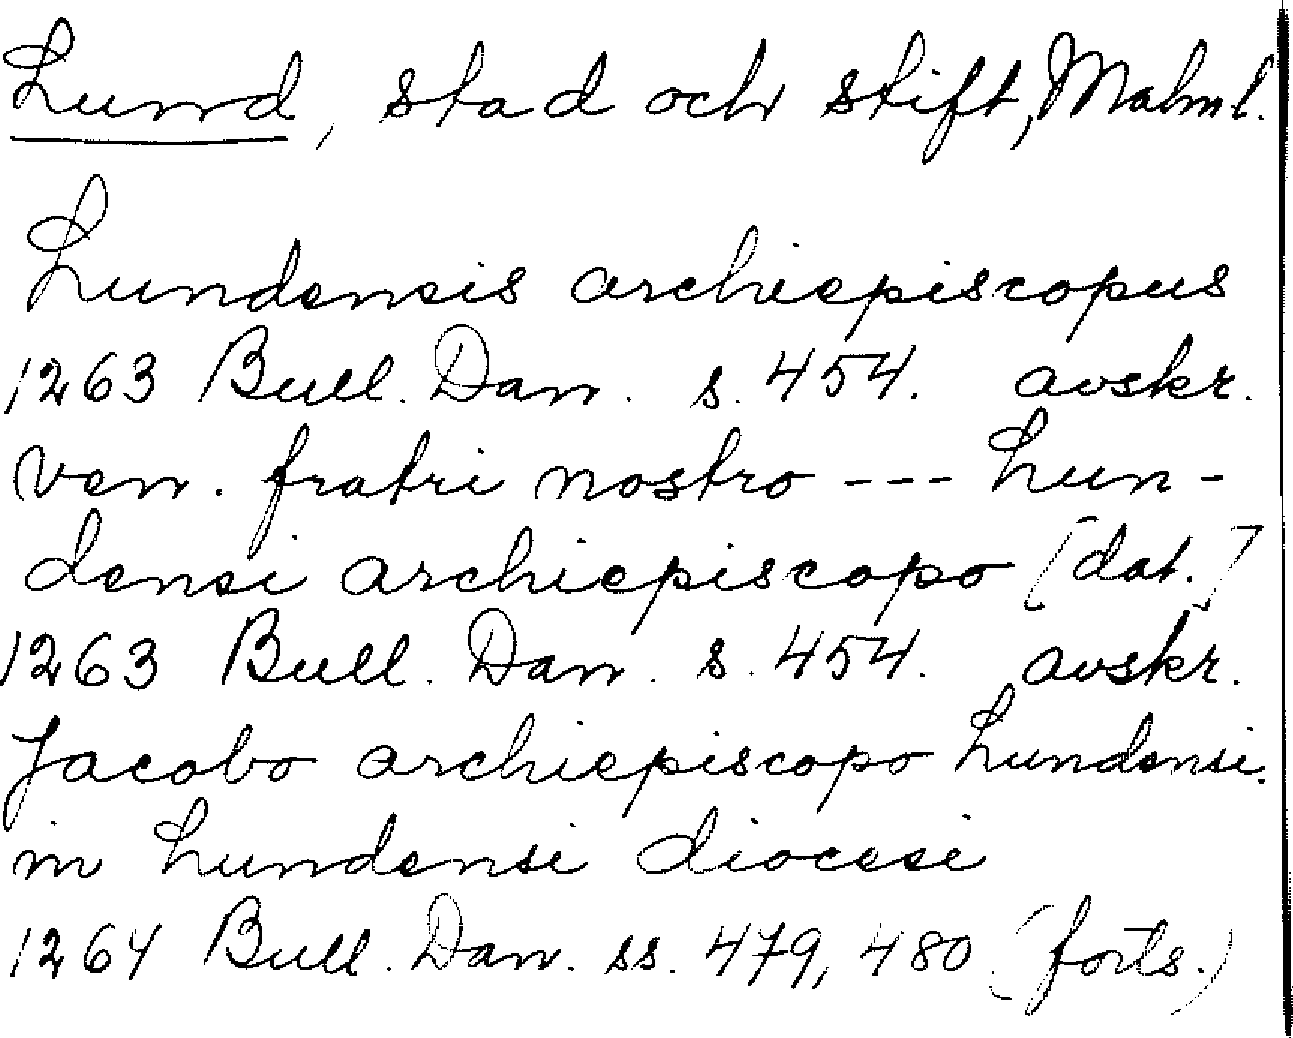 Lund, stad och stift, Malml.
Lundensis archiepiscopus
1263 Bull. Dan. s. 454. avskr.
ven. fratri nostro --- Lun-
densi archiepiscopo [dat.]
1263 Bull. Dan. s. 454. avskr.
Jacobo archiepiscopo Lundensi.
in Lundensi diocesi
1264 Bull. Dan. ss. 479, 480. (forts.)